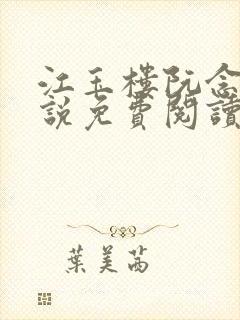 江玉樓阮念
說免費閱讀
葉美茜